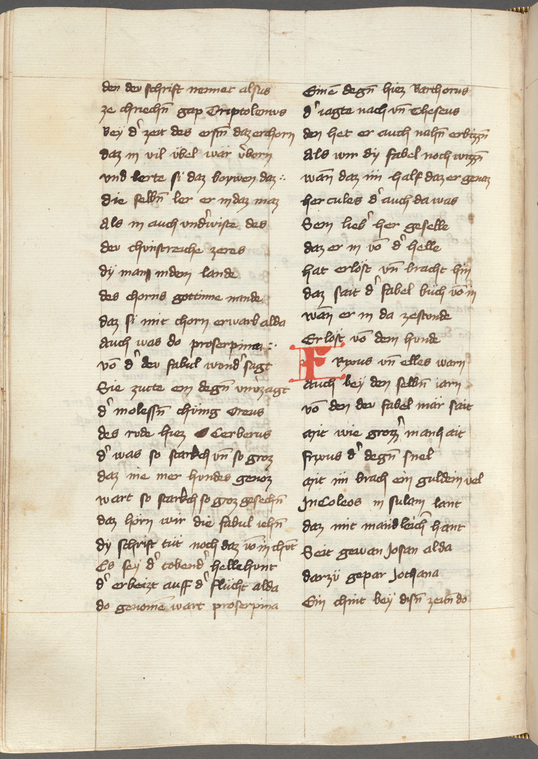 den der schrift nennet alsus
ze chriechñ gap Triptolemus
bey d' zeit des ersñ daz erchorn
daz in vil übel war
vnd lerte si daz bowen daz
die selbñ ler er in daz maz
als in auch vnd'wiste des
der chunstreiche zeres
dy man in dem lande
des chorns gottinne nande
daz si mit chorn erwarb alda
auch was do proserpina
võ d' der fabul wund' sagt
Sie zucte ein degñ vnv'zagt
d' molessñ chünig Oreus
des rude hiez Cerberus
d' was so starkch vñ so groz
daz nie mer hundes genoz
wart so starkch so groz gesechñ
daz hörn wir die fabul iehñ
dy schrift tüt noch daz võ im chünt
Es sey d' tobend' hellehunt
d' erbeizt auff d' flücht alda
do genomẽ wart proserpina
Einẽ degñ hiez Parthorus
d' iagte nach vñ Theseus
den het er auch nahñ erbizzñ
als wir dy fabel noch wizzñ
wañ daz im half daz er genaz
hercules d' auch da was
Sein lieb' her geselle
daz er in võ d' helle
hat erlöst vñ bracht hin
daz sait d' fabel büch võ in
wañ er in da zestunde
Erlöst võ dem hunde
Frixus vñ elles warñ
auch bey den selbñ iarñ
võ den der fabel mär sait
mit wie grozz' manhait
frixus d' degñ snel
mit im brach ein guldein vel
In Coleos in sulam lant
daz mit maidleich' hant
Seit gewan Josan alda
darzü gepar Jochana
Ein chint bey disñ zeitñ do